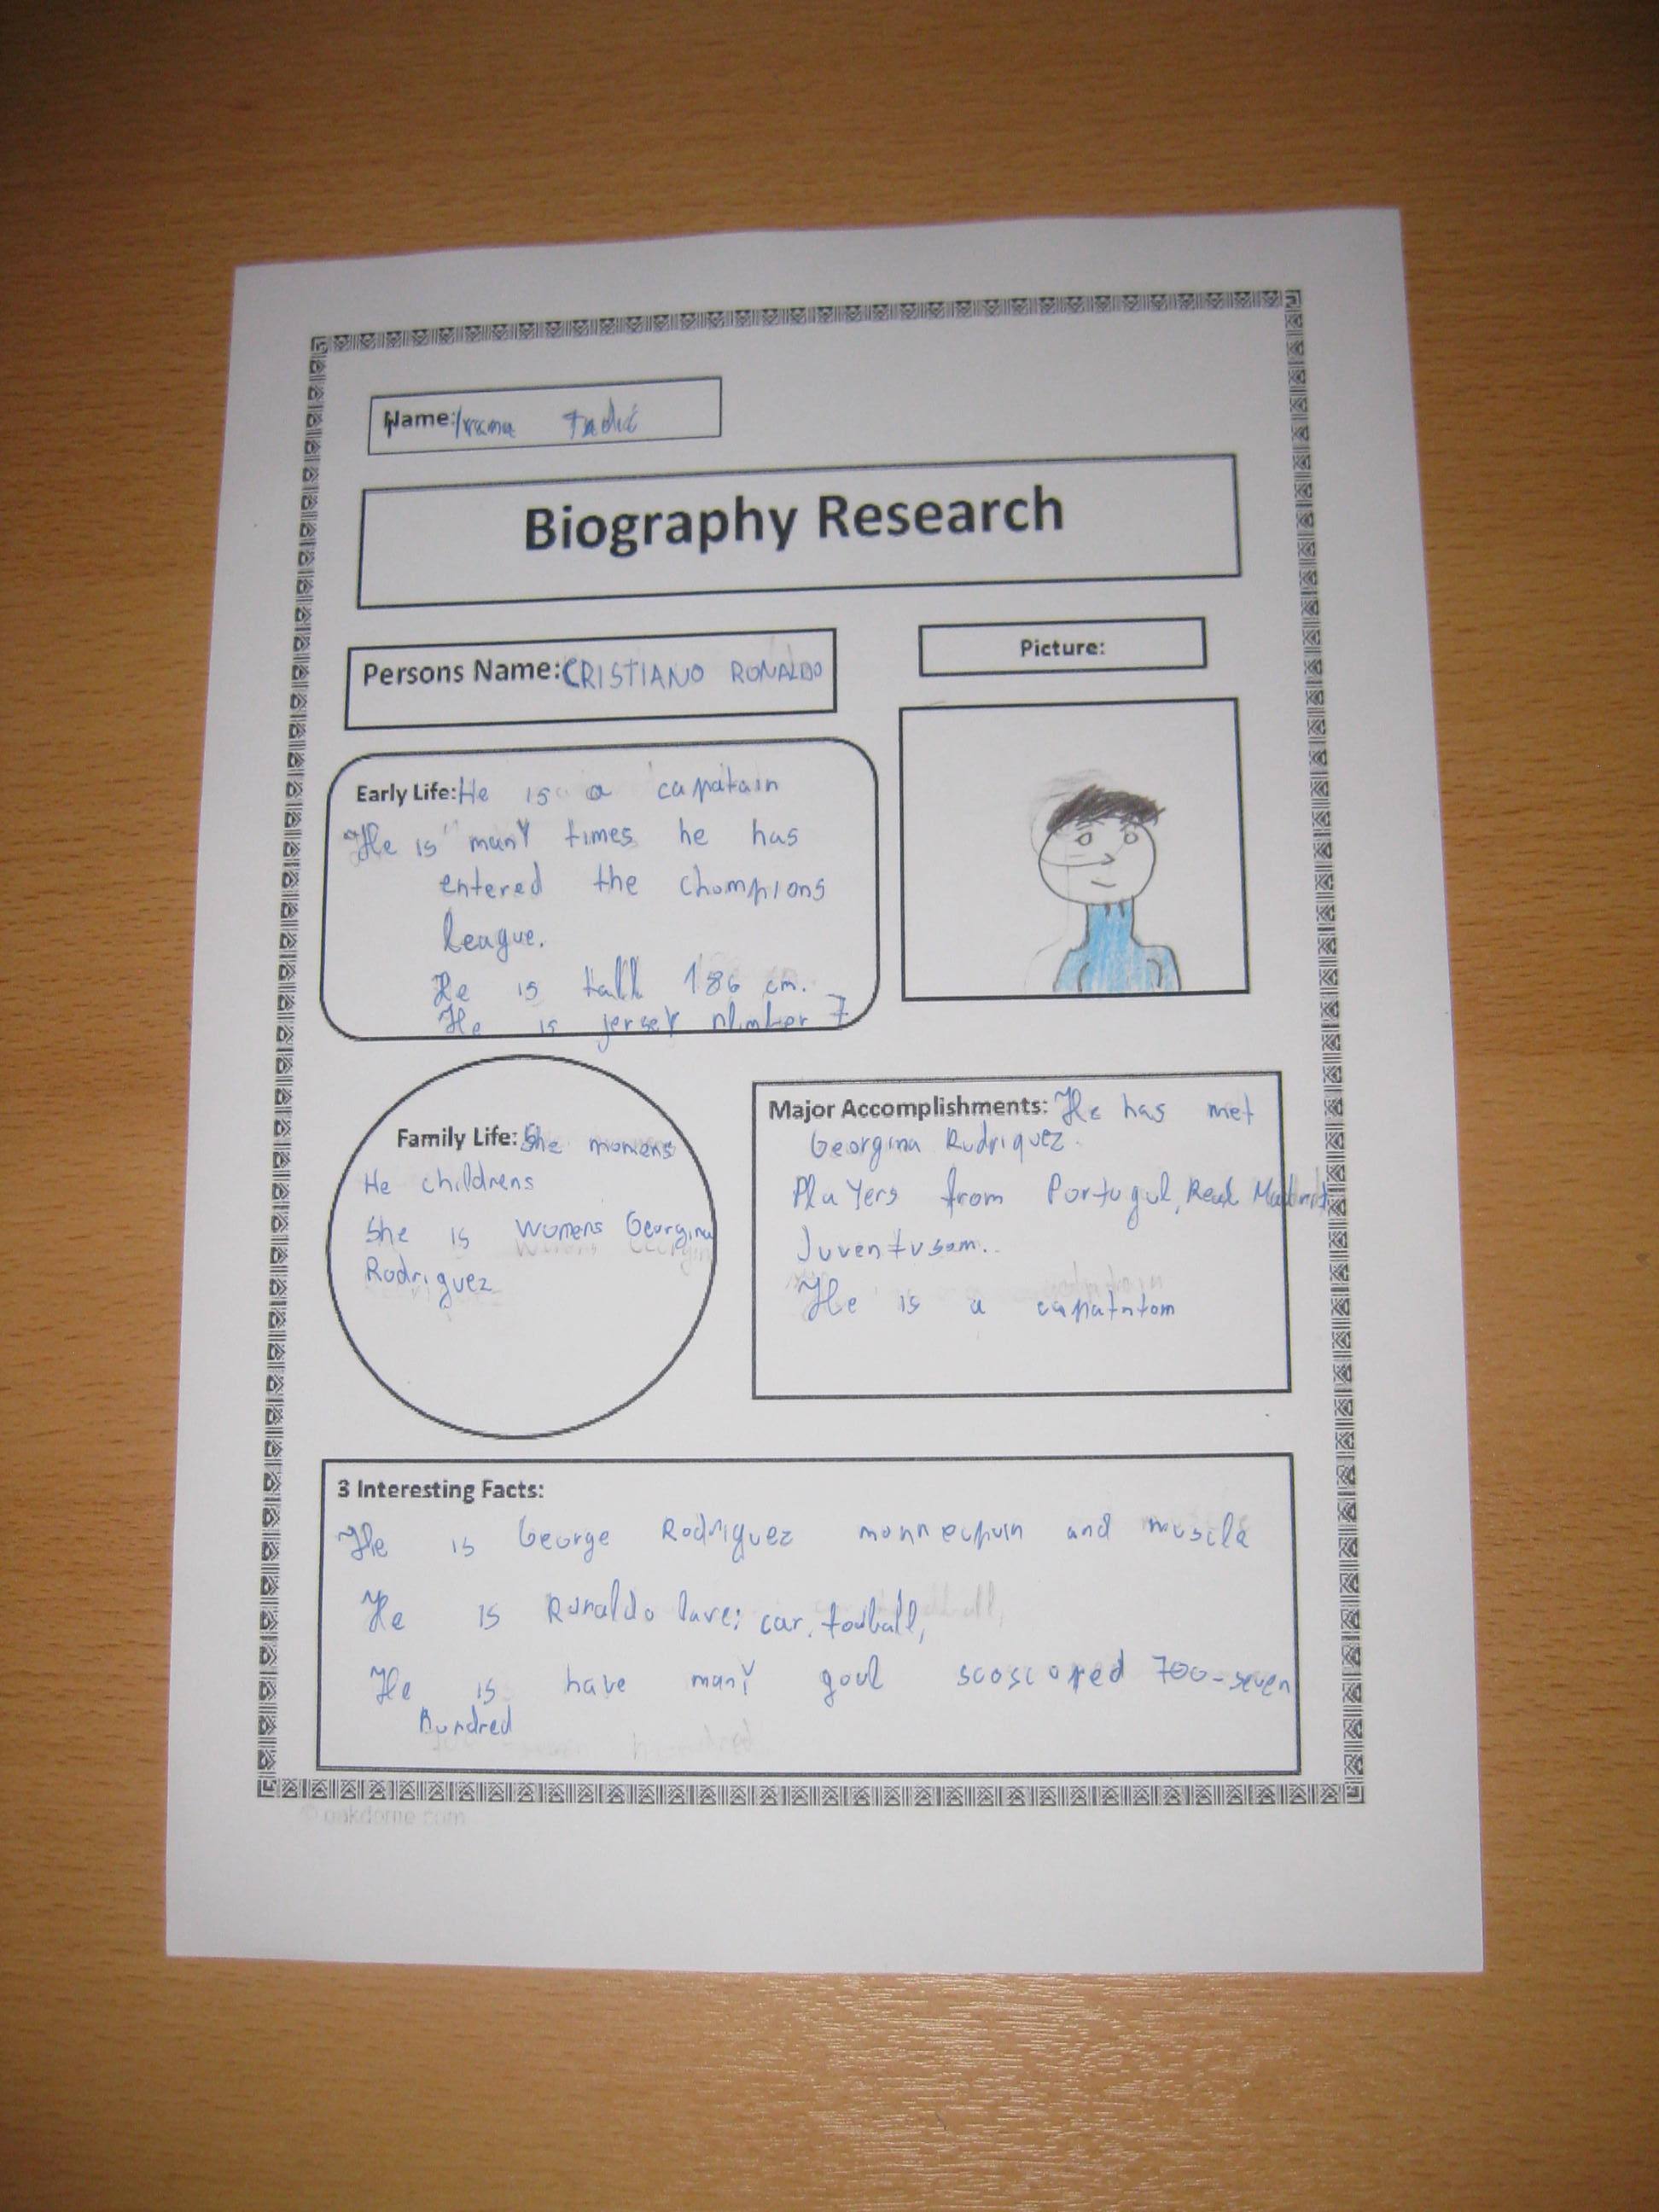 Name: Tadić
Biography Research
Persons Name: CRISTIANO RONALDO
Picture:
Early Life: He is a capatain
He is many times he has
entered the champions
league.
He is tall 186 cm.
He is jersey number 7
Family Life: She momens
He childrens
She is womens Georgina
Rodriguez
Major Accomplishments: He has met
Georgina Rudriquez.
PlaYers from Portugal, Real Madrid,
Juventusom..
He is a capatatom
3 Interesting Facts:
He is George Rodriguez monnequin and muscle
He is Ronaldo love: car, football,
He is have many goul scoscored 700-seven
hundred
© oakdome.com